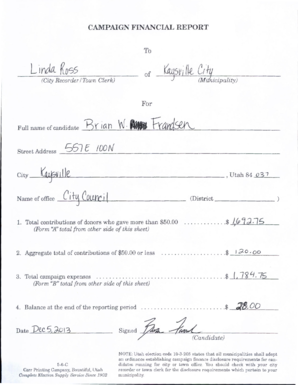 CAMPAIGN FINANCIAL REPORT
To
Linda Ross of Kaysville City
(City Recorder/Town Clerk) (Municipality)
For
Full name of candidate Brian W Frandsen
Street Address 557 E 100 N
City Kaysville, Utah 84037
Name of office City Council (District )
1. Total contributions of donors who gave more than $50.00 $ 1,692.75
(Form "A" total from other side of this sheet)
2. Aggregate total of contributions of $50.00 or less $ 120.00
3. Total campaign expenses $ 1,784.75
(Form "B" total from other side of this sheet)
4. Balance at the end of the reporting period $ 28.00
Date Dec 5, 2013 Signed
Candidate
NOTE: Utah election code 10-3-208 states that all municipalities shall adopt
an ordinance establishing campaign finance disclosure requirements for can-
didates running for city or town office. You should check with your city
recorder or town clerk for the disclosure requirements which pertain to your
municipality.
Carr Printing Company, Bountiful, Utah